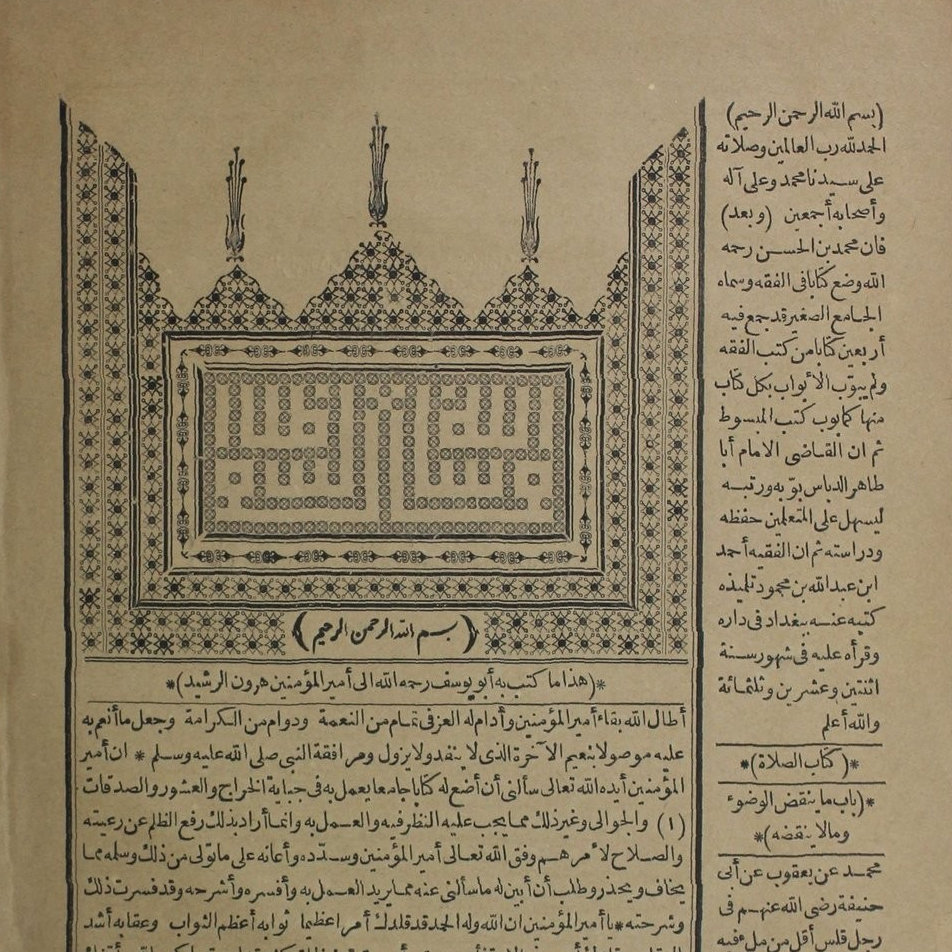 (بسم الله الرحمن الرحيم)
*(هذا ما كتب به أبو يوسف رحمه الله الى أمير المؤمنين هرون الرشيد)*
أطال الله بقاء أمير المؤمنين وأدام له العز فى تمام من النعمة ودوام من الكرامة وجعل ما أنعم به
عليه موصولا بنعيم الآخرة الذى لا ينفد ولا يزول ومرافقة النبى صلى الله عليه وسلم * ان أمير
المؤمنين أيده الله تعالى سألنى أن أضع له كتابا جامعا يعمل به فى جباية الخراج والعشور والصدقات
(١) والجوالى وغير ذلك مما يجب عليه النظر فيه والعمل به وانما أراد بذلك رفع الظلم عن رعيته
والصلاح لأمرهم وفق الله تعالى أمير المؤمنين وسدده وأعانه على ما تولى من ذلك وسلمه مما
يخاف ويحذر وطلب أن أبين له ما سألنى عنه مما يريد العمل به وأفسره وأشرحه وقد فسرت ذلك
وشرحته * يا أمير المؤمنين ان الله وله الحمد قد قلدك أمرا عظيما ثوابه أعظم الثواب وعقابه أشد
(بسم الله الرحمن الرحيم)
الحمد لله رب العالمين وصلاته
على سيدنا محمد وعلى آله
وأصحابه أجمعين (وبعد)
فان محمد بن الحسن رحمه
الله وضع كتابا فى الفقه وسماه
الجامع الصغير قد جمع فيه
أربعين كتابا من كتب الفقه
ولم يبوّب الأبواب بكل كتاب
منها كما بوب كتب المبسوط
ثم ان القاضى الامام أبا
طاهر الدباس بوّبه ورتبه
ليسهل على المتعلمين حفظه
ودراسته ثم ان الفقيه أحمد
ابن عبد الله بن محمود تلميذه
كتبه عنه ببغداد فى داره
وقرأه عليه فى شهور سنة
اثنتين وعشرين وثلثمائة
والله أعلم
*(كتاب الصلاة)*
*(باب ما ينقض الوضوء
وما لا ينقضه)*
محمد عن يعقوب عن أبى
حنيفة رضى الله عنهم فى
رجل قلس أقل من ملء فيه